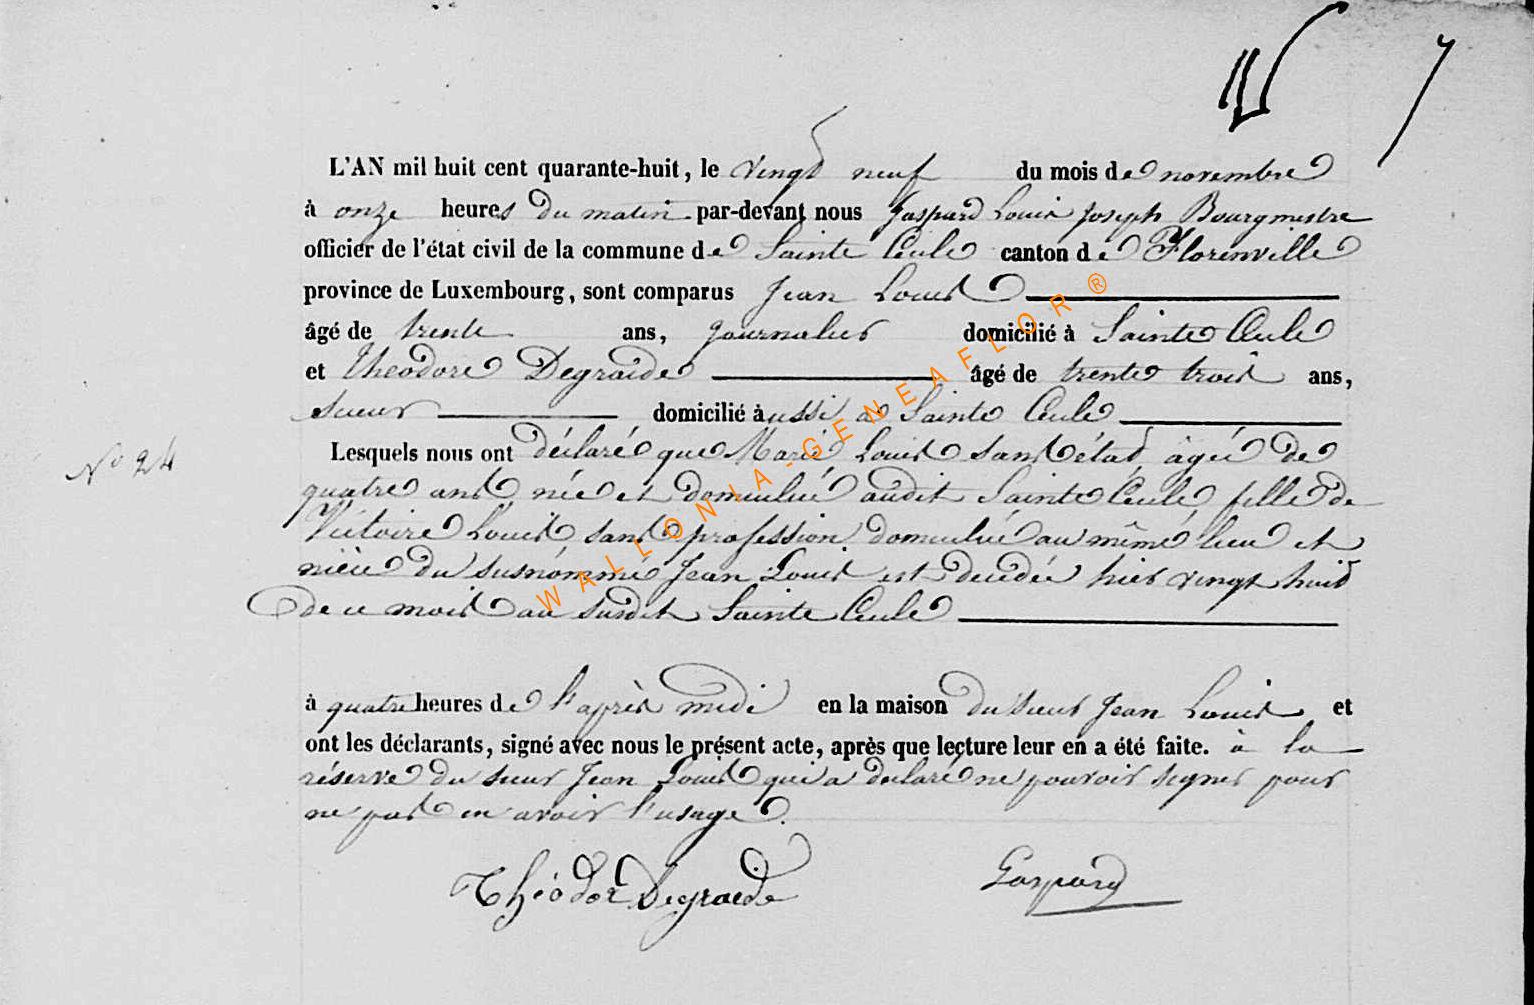 7
L'AN mil huit cent quarante-huit, le vingt neuf du mois de novembre
à onze heures du matin par-devant nous Gaspard Louis Joseph Bourgmestre
officier de l'état civil de la commune de Sainte Cécile canton de Florenville
province de Luxembourg, sont comparus Jean Louis
âgé de trente ans, journalier domicilié à Sainte Cécile
et Théodore Degraide âgé de trente trois ans,
scieur domicilié à aussi à Sainte Cécile
Lesquels nous ont déclaré que Marie Louis sans état âgée de
N° 24
quatre ans née et domiciliée audit Sainte Cécile, fille de
Victoire Louis sans profession domiciliée au même lieu et
nièce du susnommé Jean Louis est décédée hier vingt huit
de ce mois au susdit Sainte Cécile
à quatre heures de l'après midi en la maison du sieur Jean Louis et
ont les déclarants, signé avec nous le présent acte, après que lecture leur en a été faite. à la
réserve du sieur Jean Louis qui a déclaré ne pouvoir signer pour
ne pas en avoir l'usage.
Théodor Degraide Gaspard
WALLONIA-GENEAFLOR ®